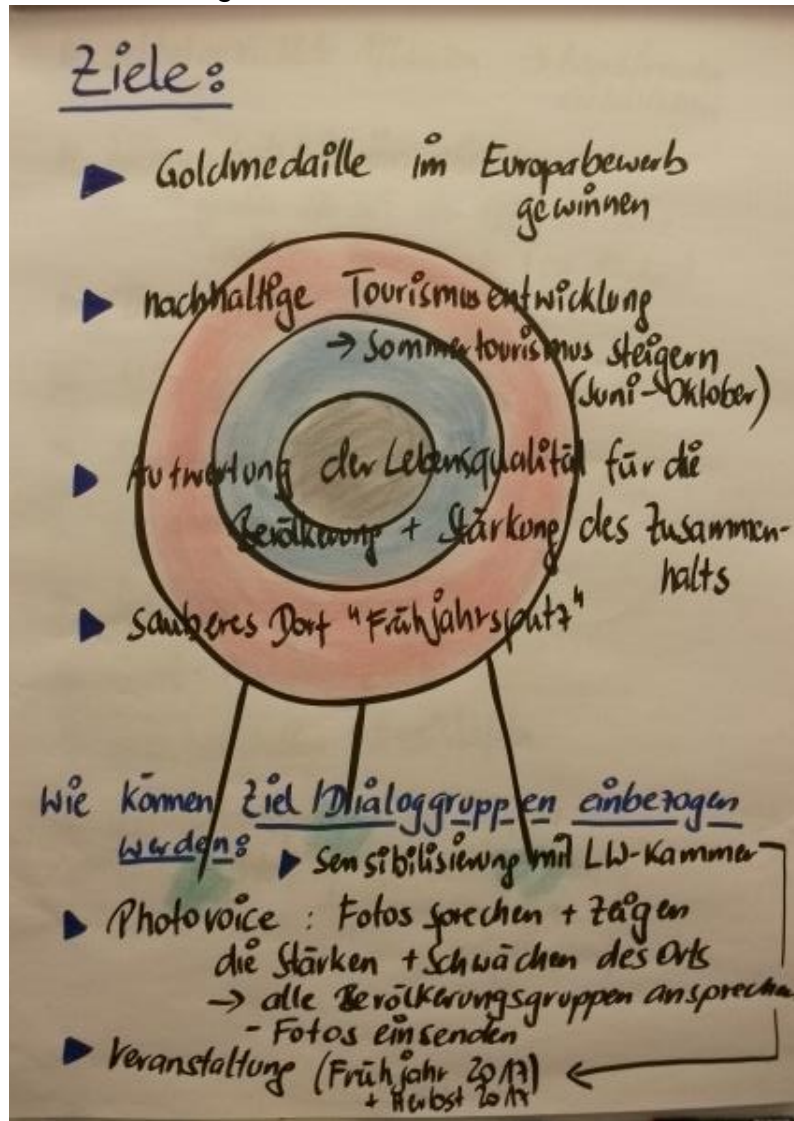 Ziele:
Goldmedaille im Europabewerb
gewinnen
nachhaltige Tourismusentwicklung
→ Sommertourismus steigern
(Juni - Oktober)
Aufwertung der Lebensqualität für die
Bevölkerung + Stärkung des Zusammen-
halts
sauberes Dorf "Frühjahrsputz"
Wie können Ziel / Dialoggruppen einbezogen
werden:
Sensibilisierung mit LW-Kammer
Photovoice : Fotos sprechen + zeigen
die Stärken + Schwächen des Orts
→ alle Bevölkerungsgruppen ansprechen
- Fotos einsenden
Veranstaltung (Frühjahr 2017)
+ Herbst 2017